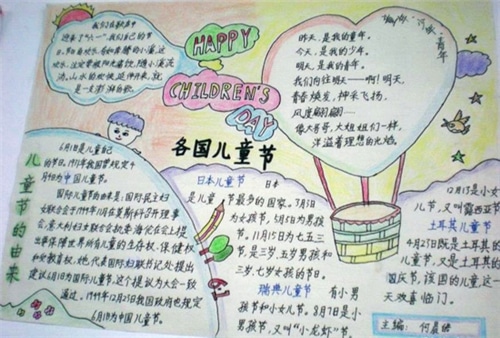 我们在歌声中
迎来了“六一”，我们自己的节
HAPPY
CHILDREN'S
DAY
昨天，是我的童年。
今天，是我的少年。
明天，是我的青年。
我们向往明天——啊！明天，
青春焕发，神采飞扬，
风度翩翩……
像大哥哥、大姐姐们一样。
洋溢着理想的光焰。
各国儿童节
儿童节的由来
6月1日是儿童自己
的节日。
4月4日为中国儿童节。
国际儿童节的由来是：国际民主妇
女联合会于1949年11月在莫斯科召开理事
会，
提出保障世界所有儿童的生存权、保健权
和受教育权，她，代表国际妇联书记处提出
建议6月1日为国际儿童节，这个提议为大会一致
通过。1949年12月23日我国政府也规定
6月1日为中国儿童节。
日本儿童节 日本
是儿童节最多的国家。3月3日
为女孩节，5月5日为男孩
节。11月15日为七五三
节，是三岁、五岁男孩和
三岁、七岁女孩的节日。
瑞典儿童节 有小男
孩节和小女儿节。8月7日是小
男孩节，又叫“小龙虾”节。
12月13是小女
儿节，又叫露西亚节
土耳其儿童节
4月23日既是土耳其
儿童节，又是土耳其的
国庆节，该国的儿童，这一
天欢喜临门。
主编：何晨皓